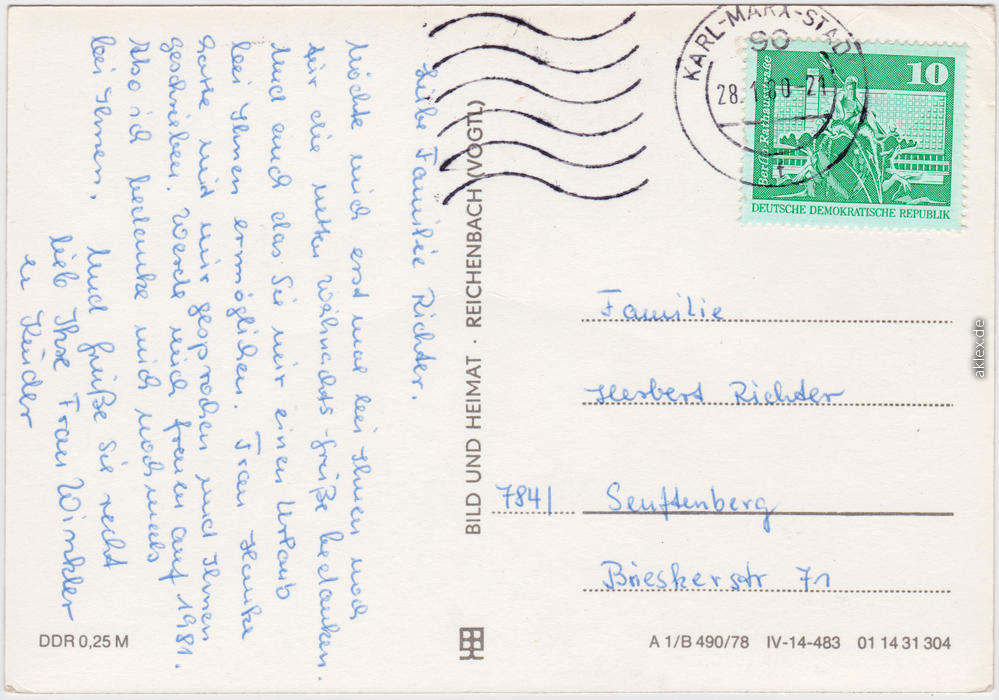 Liebe Familie Richter.
Möchte mich erst mal bei Ihnen noch
für die netten Weihnachts-grüße bedanken.
Und auch das Sie mir einen Urlaub
bei Ihnen ermöglichen. Frau Hanke
hatte mit mir gesprochen und Ihnen
geschrieben. Werde mich freuen auf 1981.
Also ich bedanke mich nochmals
bei Ihnen.
Und grüße Sie recht
lieb Ihre Frau Winkler
u Kinder
DDR 0,25 M
BILD UND HEIMAT · REICHENBACH (VOGTL)
KARL-MARX-STADT
90
28.1.80-21
t
10
Berlin Rathausstraße
DEUTSCHE DEMOKRATISCHE REPUBLIK
Familie
Herbert Richter
7841 Senftenberg
Brieskerstr 71
A 1/B 490/78 IV-14-483 01 14 31 304
aklex.de